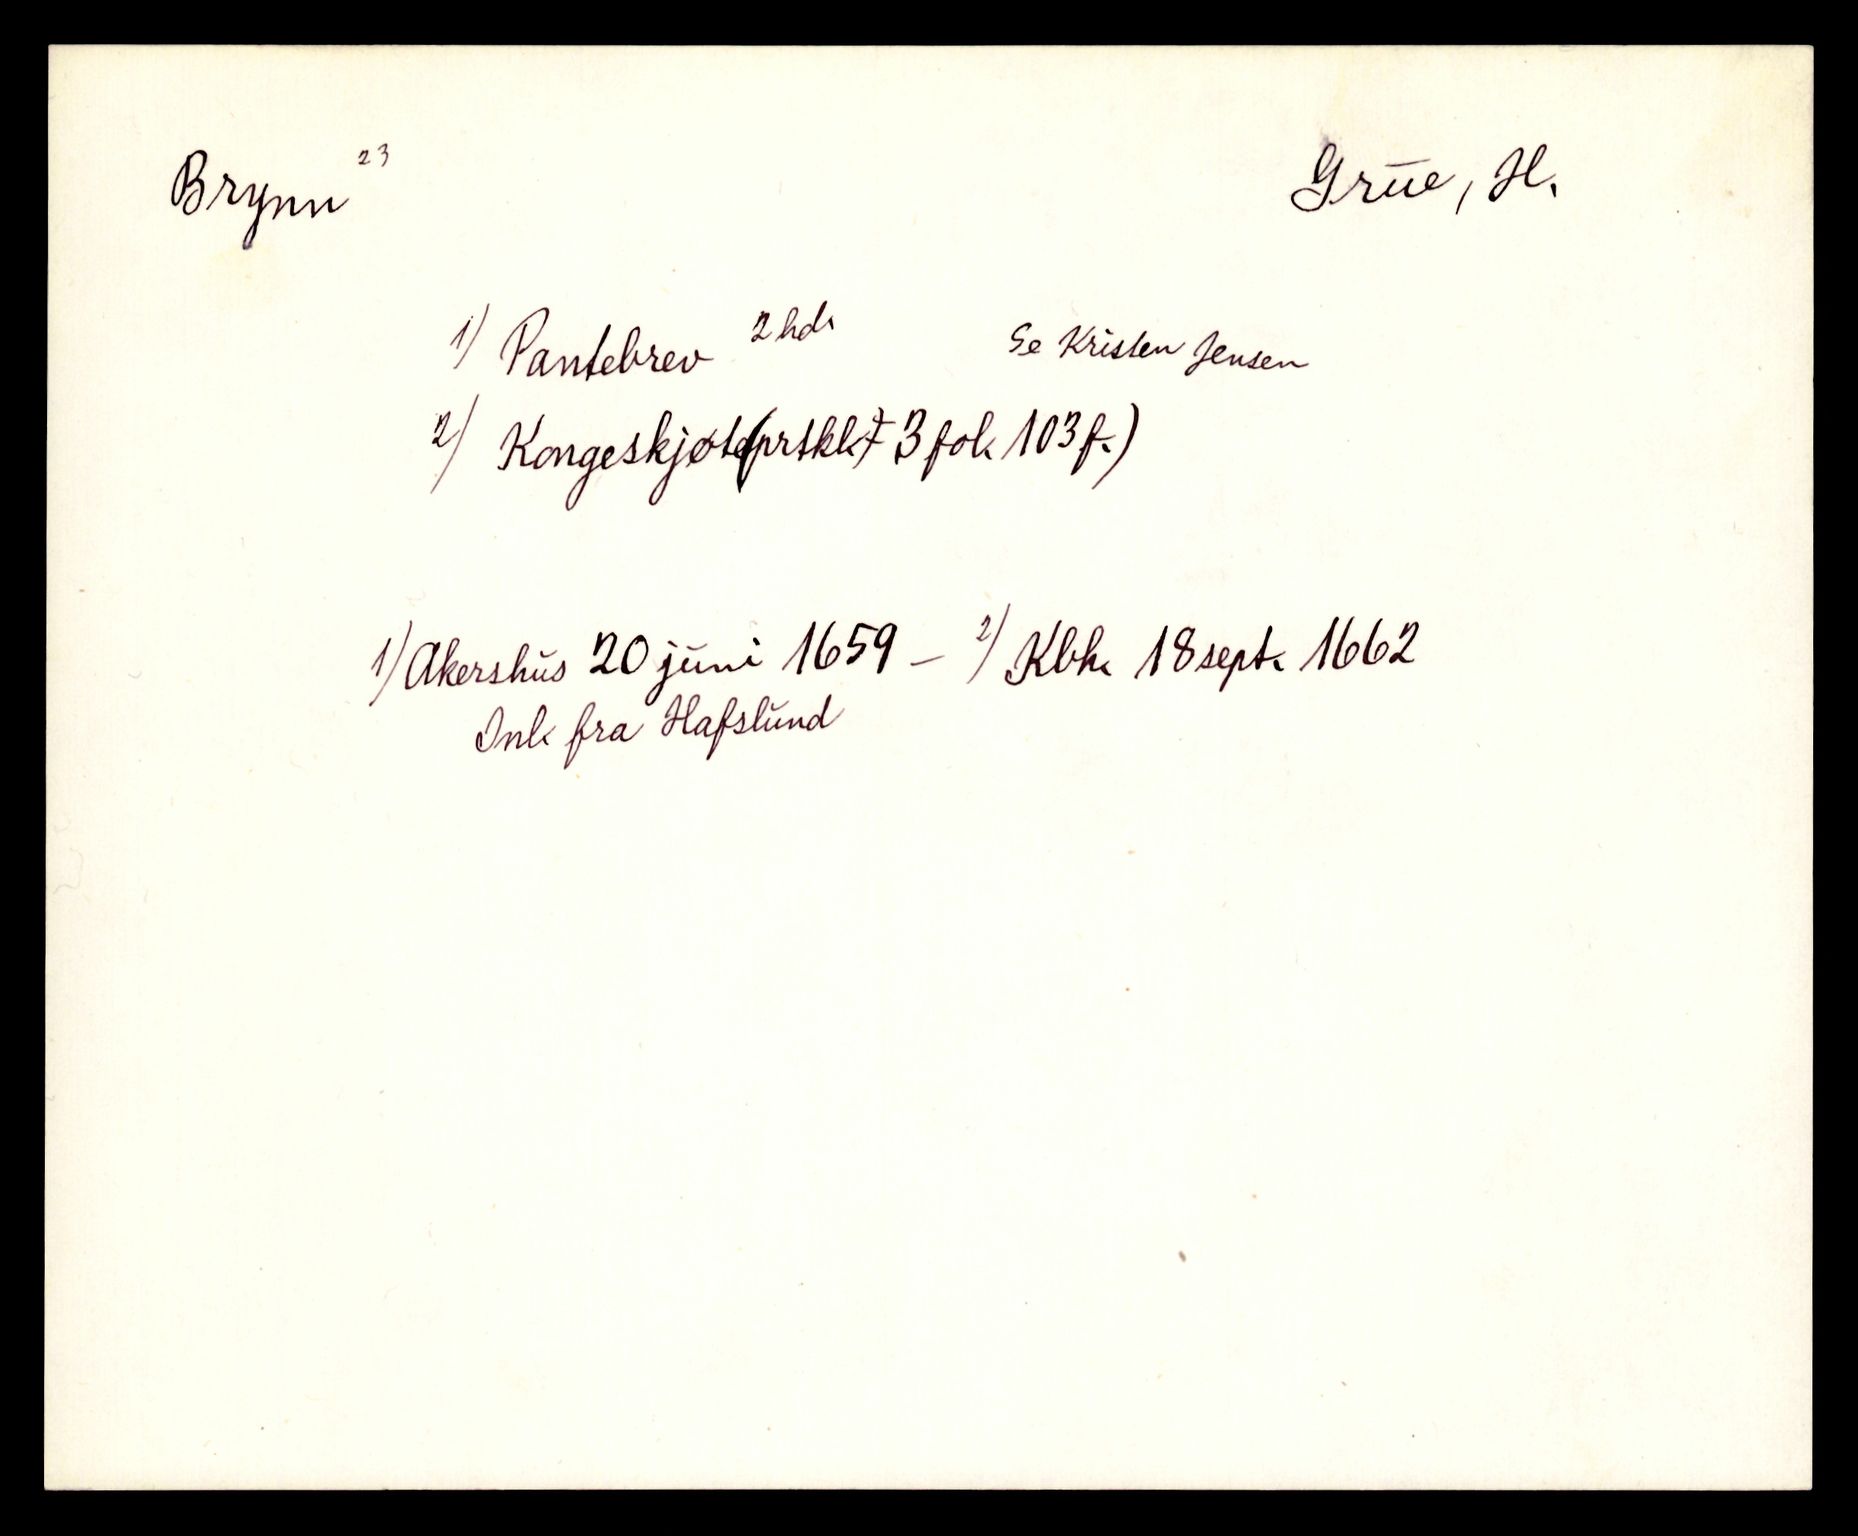 Brynn 23 Grue, H.
1) Pantebrev 2 hd. Se Kristen Jensen
2) Kongeskjøte (prtkk. 3 fol. 103 f.)
1) Akershus 20 juni 1659 – 2) Kbh. 18 sept. 1662
Ink fra Hafslund